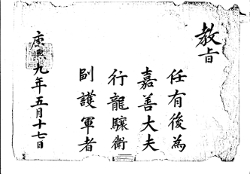 教旨
任有後為
嘉善大夫
行龍驤衛
副護軍者
康熙九年五月十七日